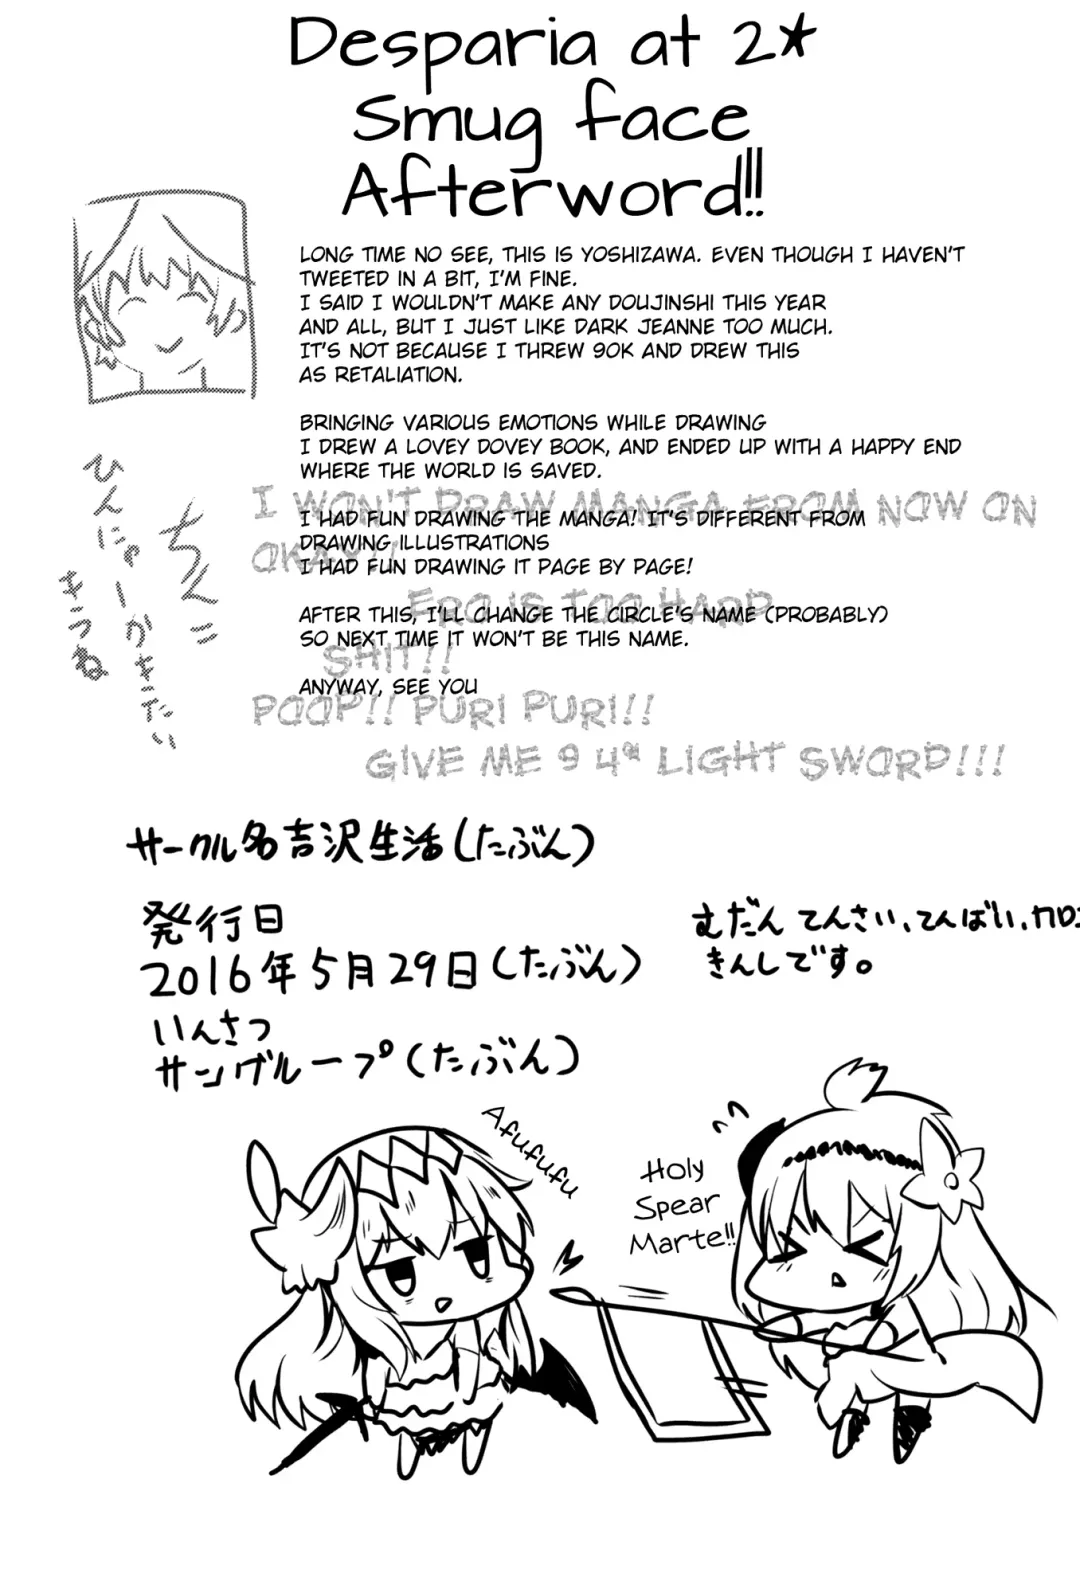 Desparia at 2*
Smug face
Afterword!!
LONG TIME NO SEE, THIS IS YOSHIZAWA. EVEN THOUGH I HAVEN'T
TWEETED IN A BIT, I'M FINE.
I SAID I WOULDN'T MAKE ANY DOUJINSHI THIS YEAR
AND ALL, BUT I JUST LIKE DARK JEANNE TOO MUCH.
IT'S NOT BECAUSE I THREW 90K AND DREW THIS
AS RETALIATION.
BRINGING VARIOUS EMOTIONS WHILE DRAWING
I DREW A LOVEY DOVEY BOOK, AND ENDED UP WITH A HAPPY END
WHERE THE WORLD IS SAVED.
I WON'T DRAW MANGA FROM NOW ON
OKAY!!
I HAD FUN DRAWING THE MANGA! IT'S DIFFERENT FROM
DRAWING ILLUSTRATIONS
I HAD FUN DRAWING IT PAGE BY PAGE!
ERO IS TOO HARD
SHIT!!
AFTER THIS, I'LL CHANGE THE CIRCLE'S NAME (PROBABLY)
SO NEXT TIME IT WON'T BE THIS NAME.
ANYWAY, SEE YOU
POOP!! PURI PURI!!
GIVE ME 9 4* LIGHT SWORD!!!
ちんこ
ひんにゅーがきたい
きつね
サークル名吉沢生活(たぶん)
発行日
2016年5月29日(たぶん)
いんさつ
サングループ(たぶん)
むだん てんさい、てんばい、カロエ
きんしです。
Afufufu
Holy
Spear
Marte!!